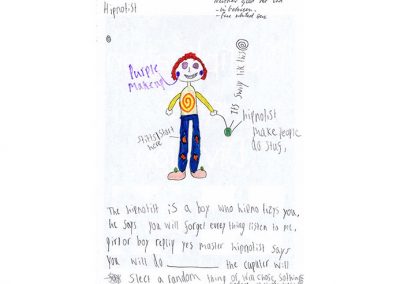 Hipnotist
neither good nor bad
- in between.
Purple
makeup
its swirly like this
hipnotist
make people
do stuff,
stilts start
here
The hipnotist is a boy who hipno tizys you,
he says you will forget everything listen to me,
girl or boy replys yes master hipnotist says
you will do ________ the caputer will
slect a random thing or will chose somthing